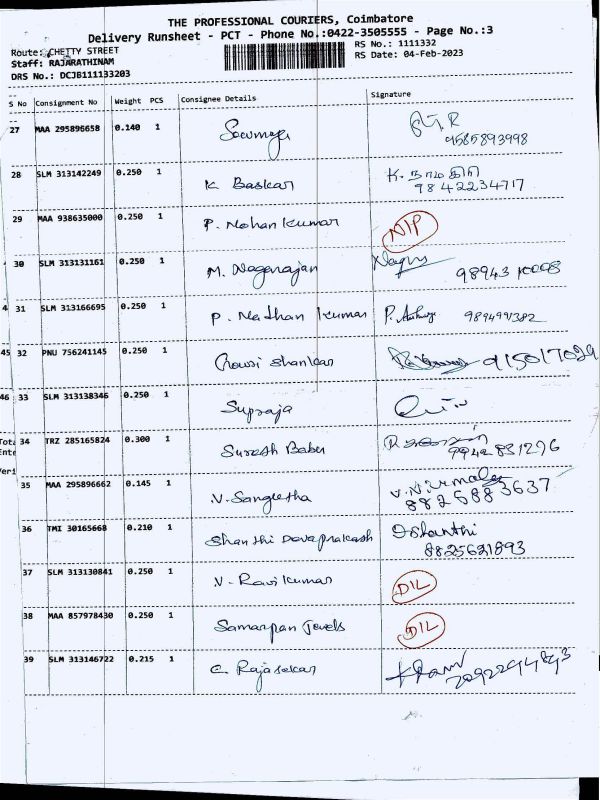 THE PROFESSIONAL COURIERS, Coimbatore
Delivery Runsheet - PCT - Phone No.:0422-3505555 - Page No.:3
Route: CHETTY STREET
RS No.: 1111332
Staff: RAJARATHINAM
RS Date: 04-Feb-2023
DRS No.: DCJB111133203
S No Consignment No Weight PCS Consignee Details Signature
27 MAA 295896658 0.140 1 Sowmya
9585893998
28 SLM 313142249 0.250 1 K Baskar
9842234717
29 MAA 938635000 0.250 1 P. Mohan kumar NIP
4 30 SLM 313131161 0.250 1 M. Nagarajan
4 31 SLM 313166695 0.250 1 P. Madhan kumar
9894991382
45 32 PNU 756241145 0.250 1 Gowri Shankar 915017029
46 33 SLM 313138346 0.250 1 Supraja
34 TRZ 285165824 0.300 1 Suresh Babu
9942831296
35 MAA 295896662 0.145 1 V. Sangeetha V. Nirmala
8825883637
36 TMI 30165668 0.210 1 Shanthi Devaprakash
8825621893
37 SLM 313130841 0.250 1 V. Ravi kumar DIL
38 MAA 857978430 0.250 1 Samarpan Jewels DIL
39 SLM 313146722 0.215 1 C. Rajasekar